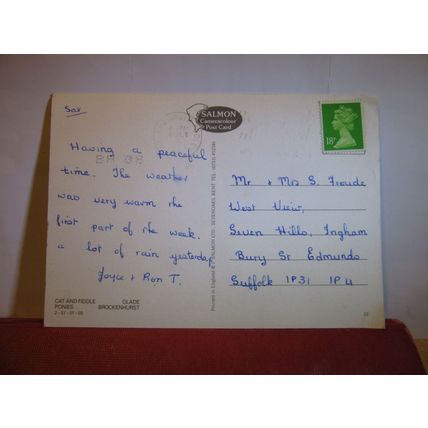 Sat
SALMON
Cameracolour
Post Card
18P
Having a peaceful
time. The weather
was very warm the
first part of the week.
a lot of rain yesterday
Joyce + Ron T.
Mr + Mrs S. Froude
West View,
Seven Hills, Ingham
Bury St Edmunds
Suffolk IP31 1PU
CAT AND FIDDLE GLADE
PONIES BROCKENHURST
2-57-01-08
Printed in England © J. SALMON LTD. SEVENOAKS, KENT. TEL.